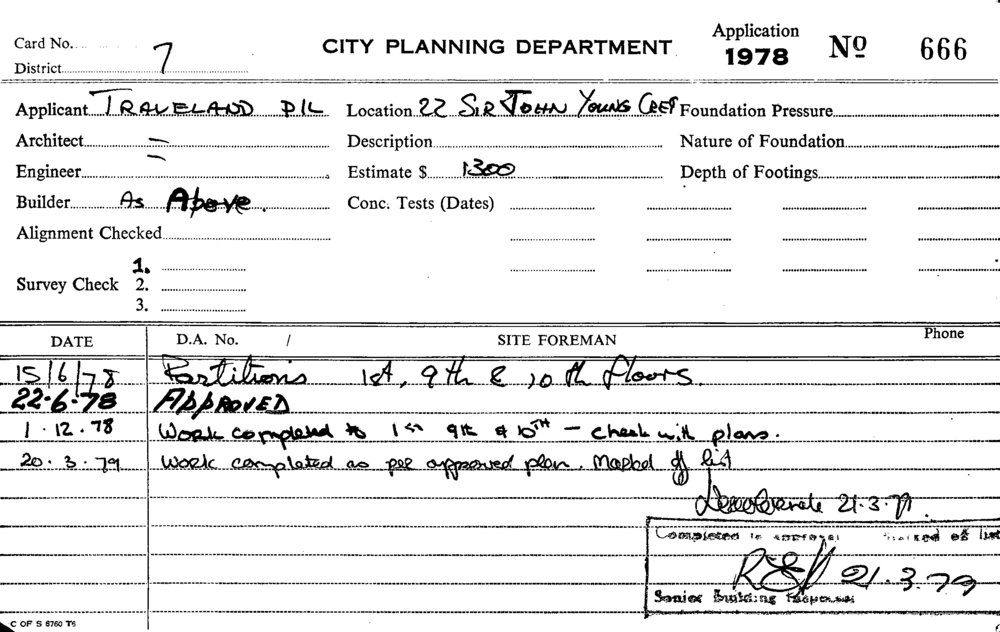 Card No. 7 CITY PLANNING DEPARTMENT Application 1978 Nº 666
District
Applicant TRAVELAND P/L Location 22 SIR JOHN YOUNG CRES Foundation Pressure
Architect — Description Nature of Foundation
Engineer — Estimate $ 1300 Depth of Footings
Builder As Above. Conc. Tests (Dates)
Alignment Checked
Survey Check 1.
2.
3.
DATE D.A. No. / SITE FOREMAN Phone
15/6/78 Partitions 1st, 9th & 10th floors.
22-6-78 APPROVED
1.12.78 Work completed to 1st 9th & 10TH — check with plans.
20.3.79 Work completed as per approved plan. Marked of list
21.3.79.
Completed to approval marked off list
21.3.79
Senior Building Inspector
C OF S 6760 T6